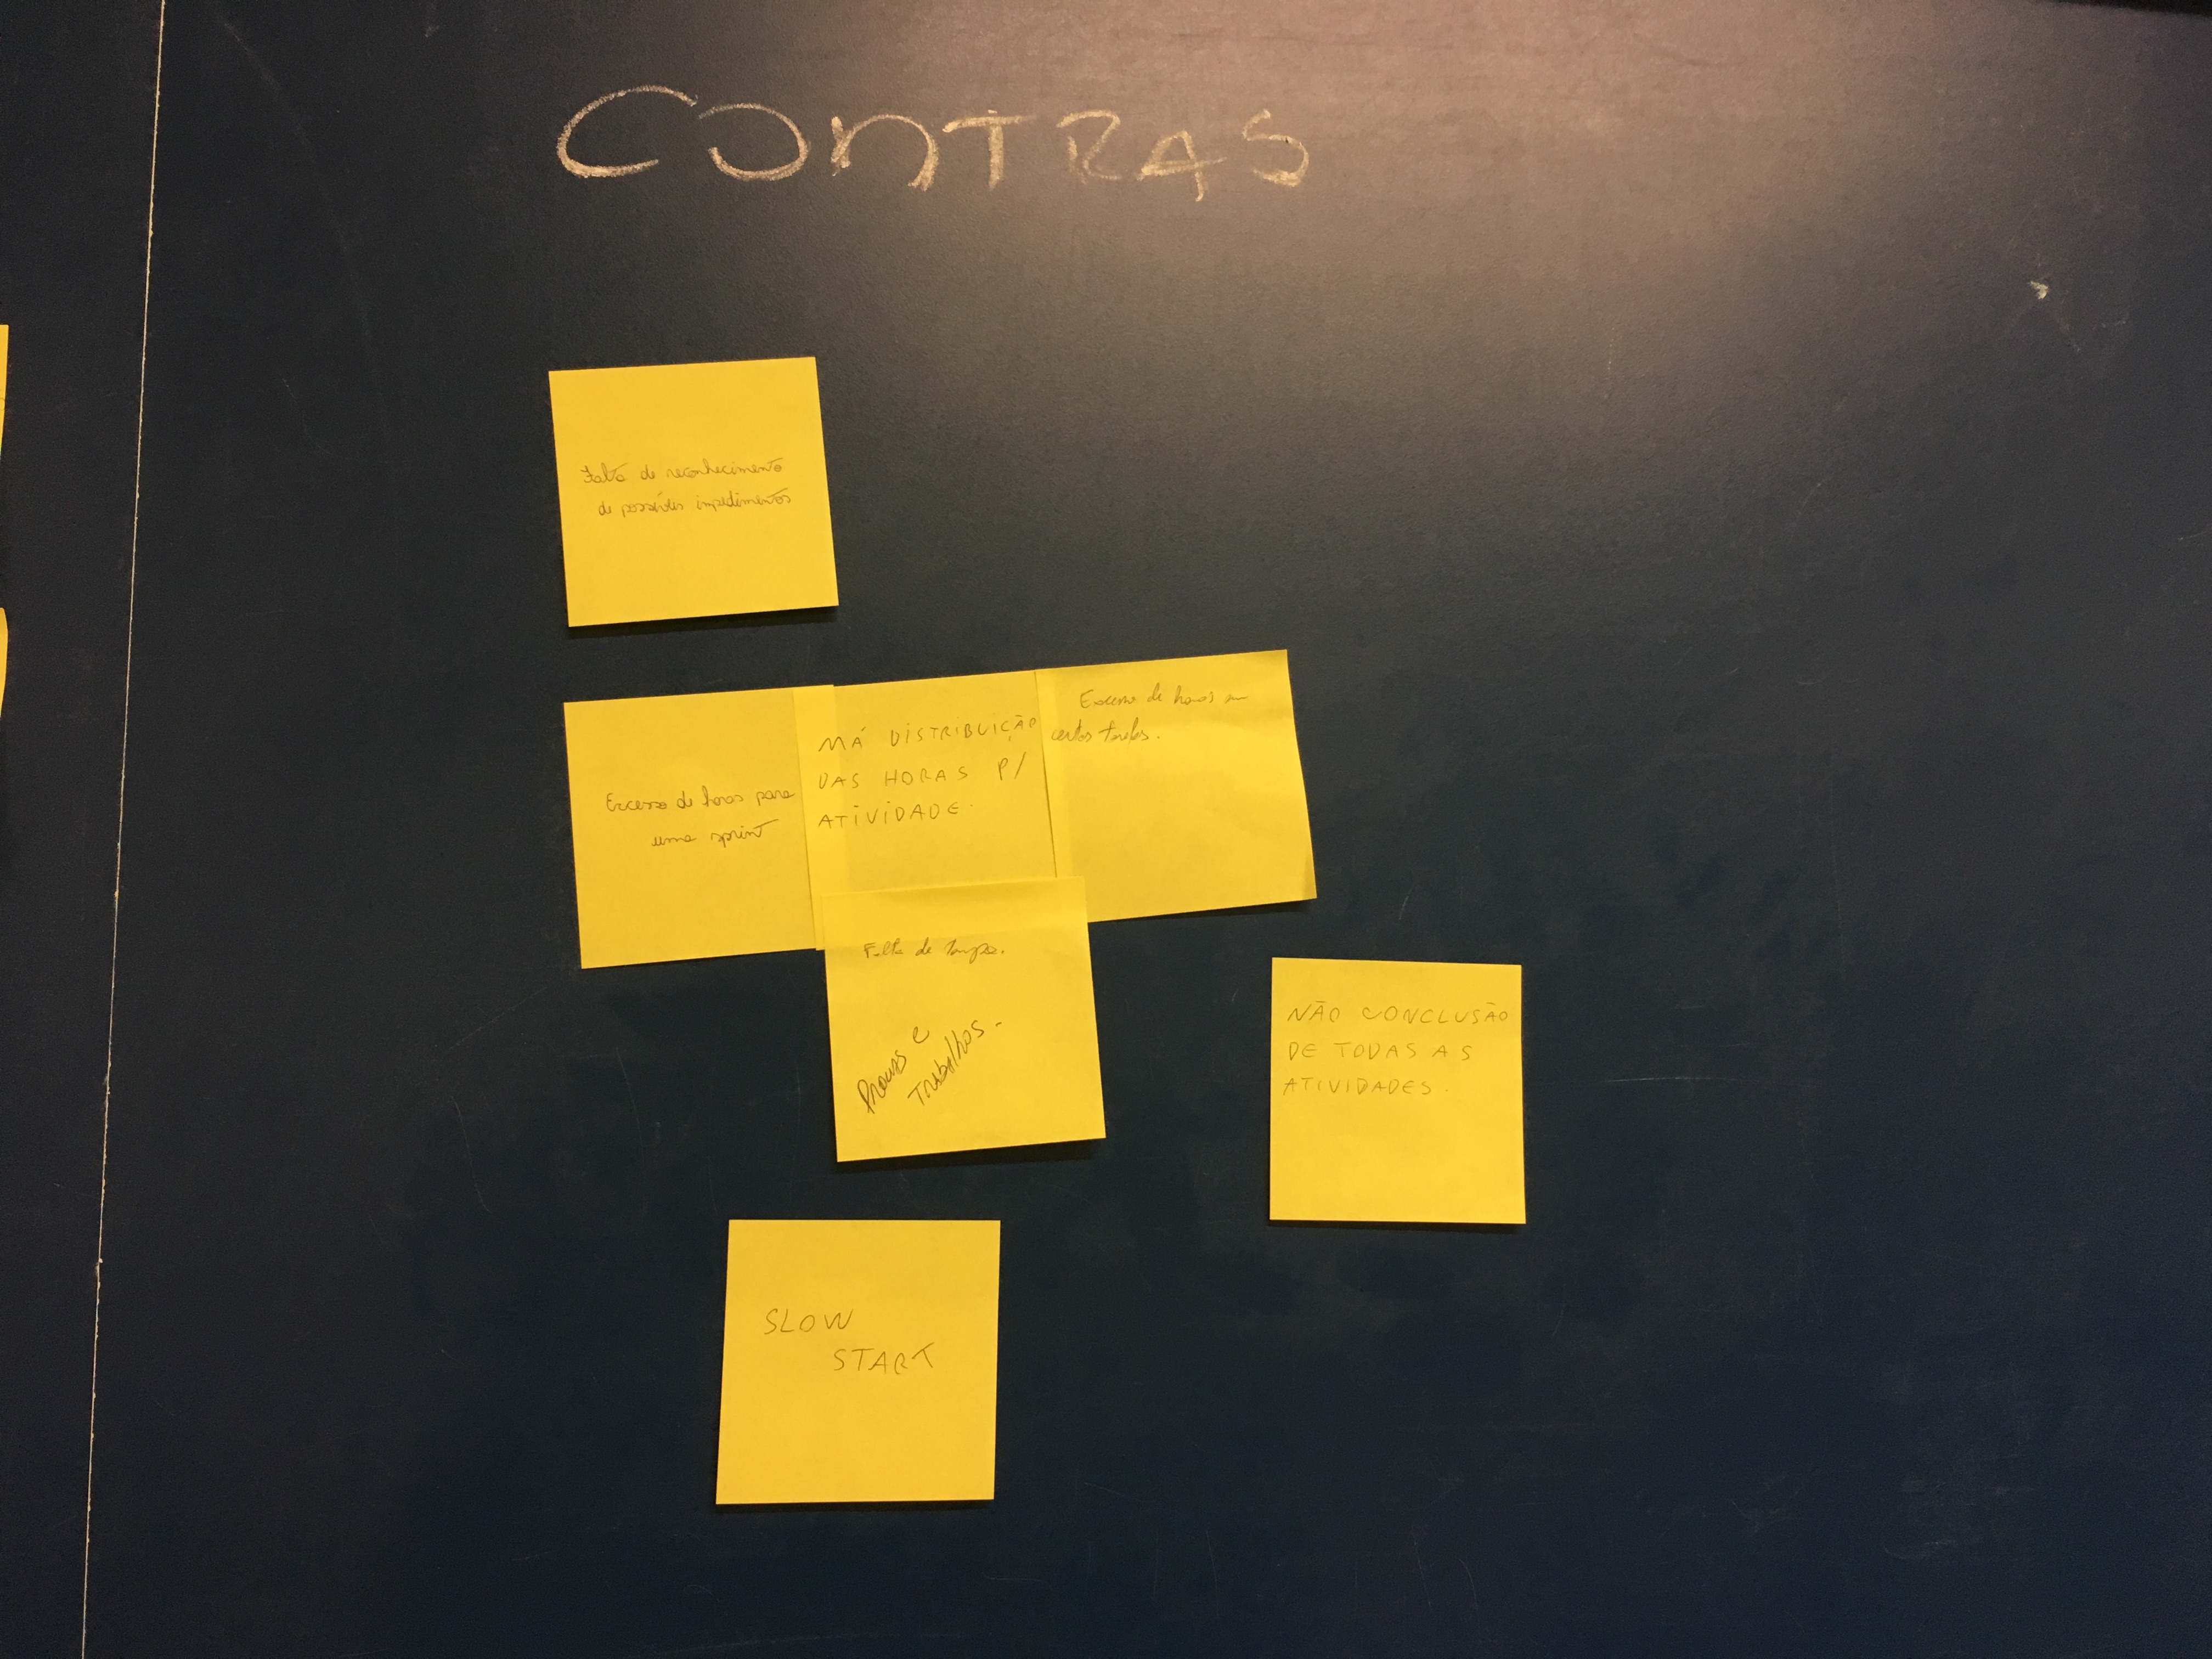 CONTRAS
Falta de reconhecimento
de possíveis impedimentos
Excesso de horas para
uma sprint
MÁ DISTRIBUIÇÃO
DAS HORAS P/
ATIVIDADE.
Excesso de horas em
certas tarefas.
Falta de tempo.
Provas e
Trabalhos-
NÃO CONCLUSÃO
DE TODAS AS
ATIVIDADES.
SLOW
START